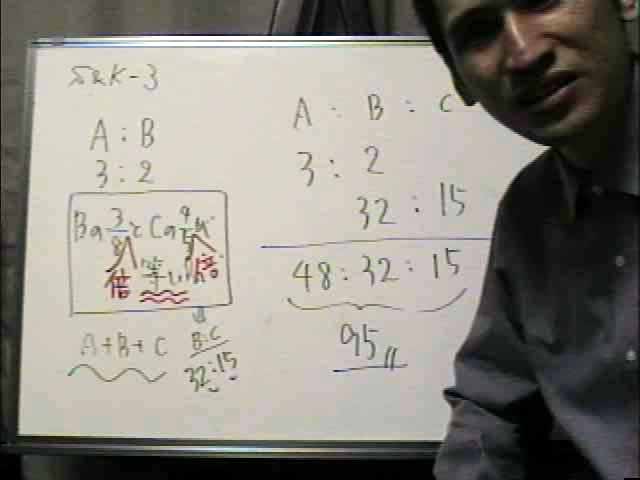 A : B
3 : 2
Bの 3/8 と Cの 4/5 が
倍 等しい 倍
A+B+C
B:C
32:15
A : B : C
3 : 2
32 : 15
48 : 32 : 15
95